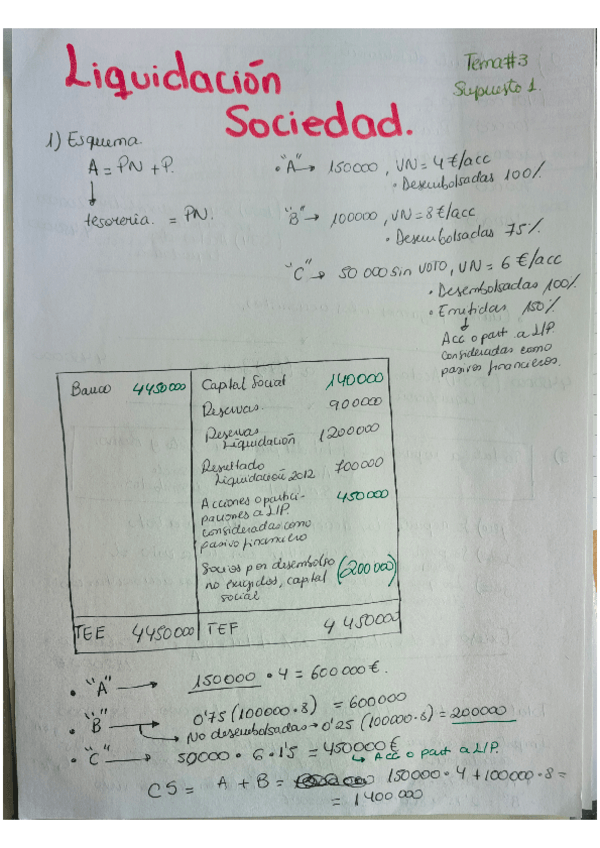 Liquidación
Sociedad.
Tema#3
Supuesto 1.
1) Esquema
A = PN + P.
tesoreria. = PN.
• "A" → 150000, VN = 4 €/acc
• Desembolsadas 100%
"B" → 100000, VN = 8 €/acc
• Desembolsadas 75%
"C" → 50 000 sin voto, VN = 6 €/acc
• Desembolsadas 100%
• Emitidas 150%
Acc o part. a L/P.
consideradas como
pasivos financieros.
Banco 4450000 Capital Social 140000
Reservas. 900000
Reservas
Liquidación 1200000
Resultado
Liquidación 2012 700000
Acciones o partici- 450000
paciones a L/P.
consideradas como
pasivo financiero
Socios por desembolso
no exigidos, capital (200000)
social
TEE 4450000 TEF 4 45000
• "A" → 150000 • 4 = 600000€.
• "B" → 0'75 (100000•8) = 600000
No desembolsadas → 0'25 (100000•8) = 200000
• "C" → 50000 • 6 • 1'5 = 450000€
Acc o part a L/P.
CS = A + B = 150000 • 4 + 100000 • 8 =
= 1400000